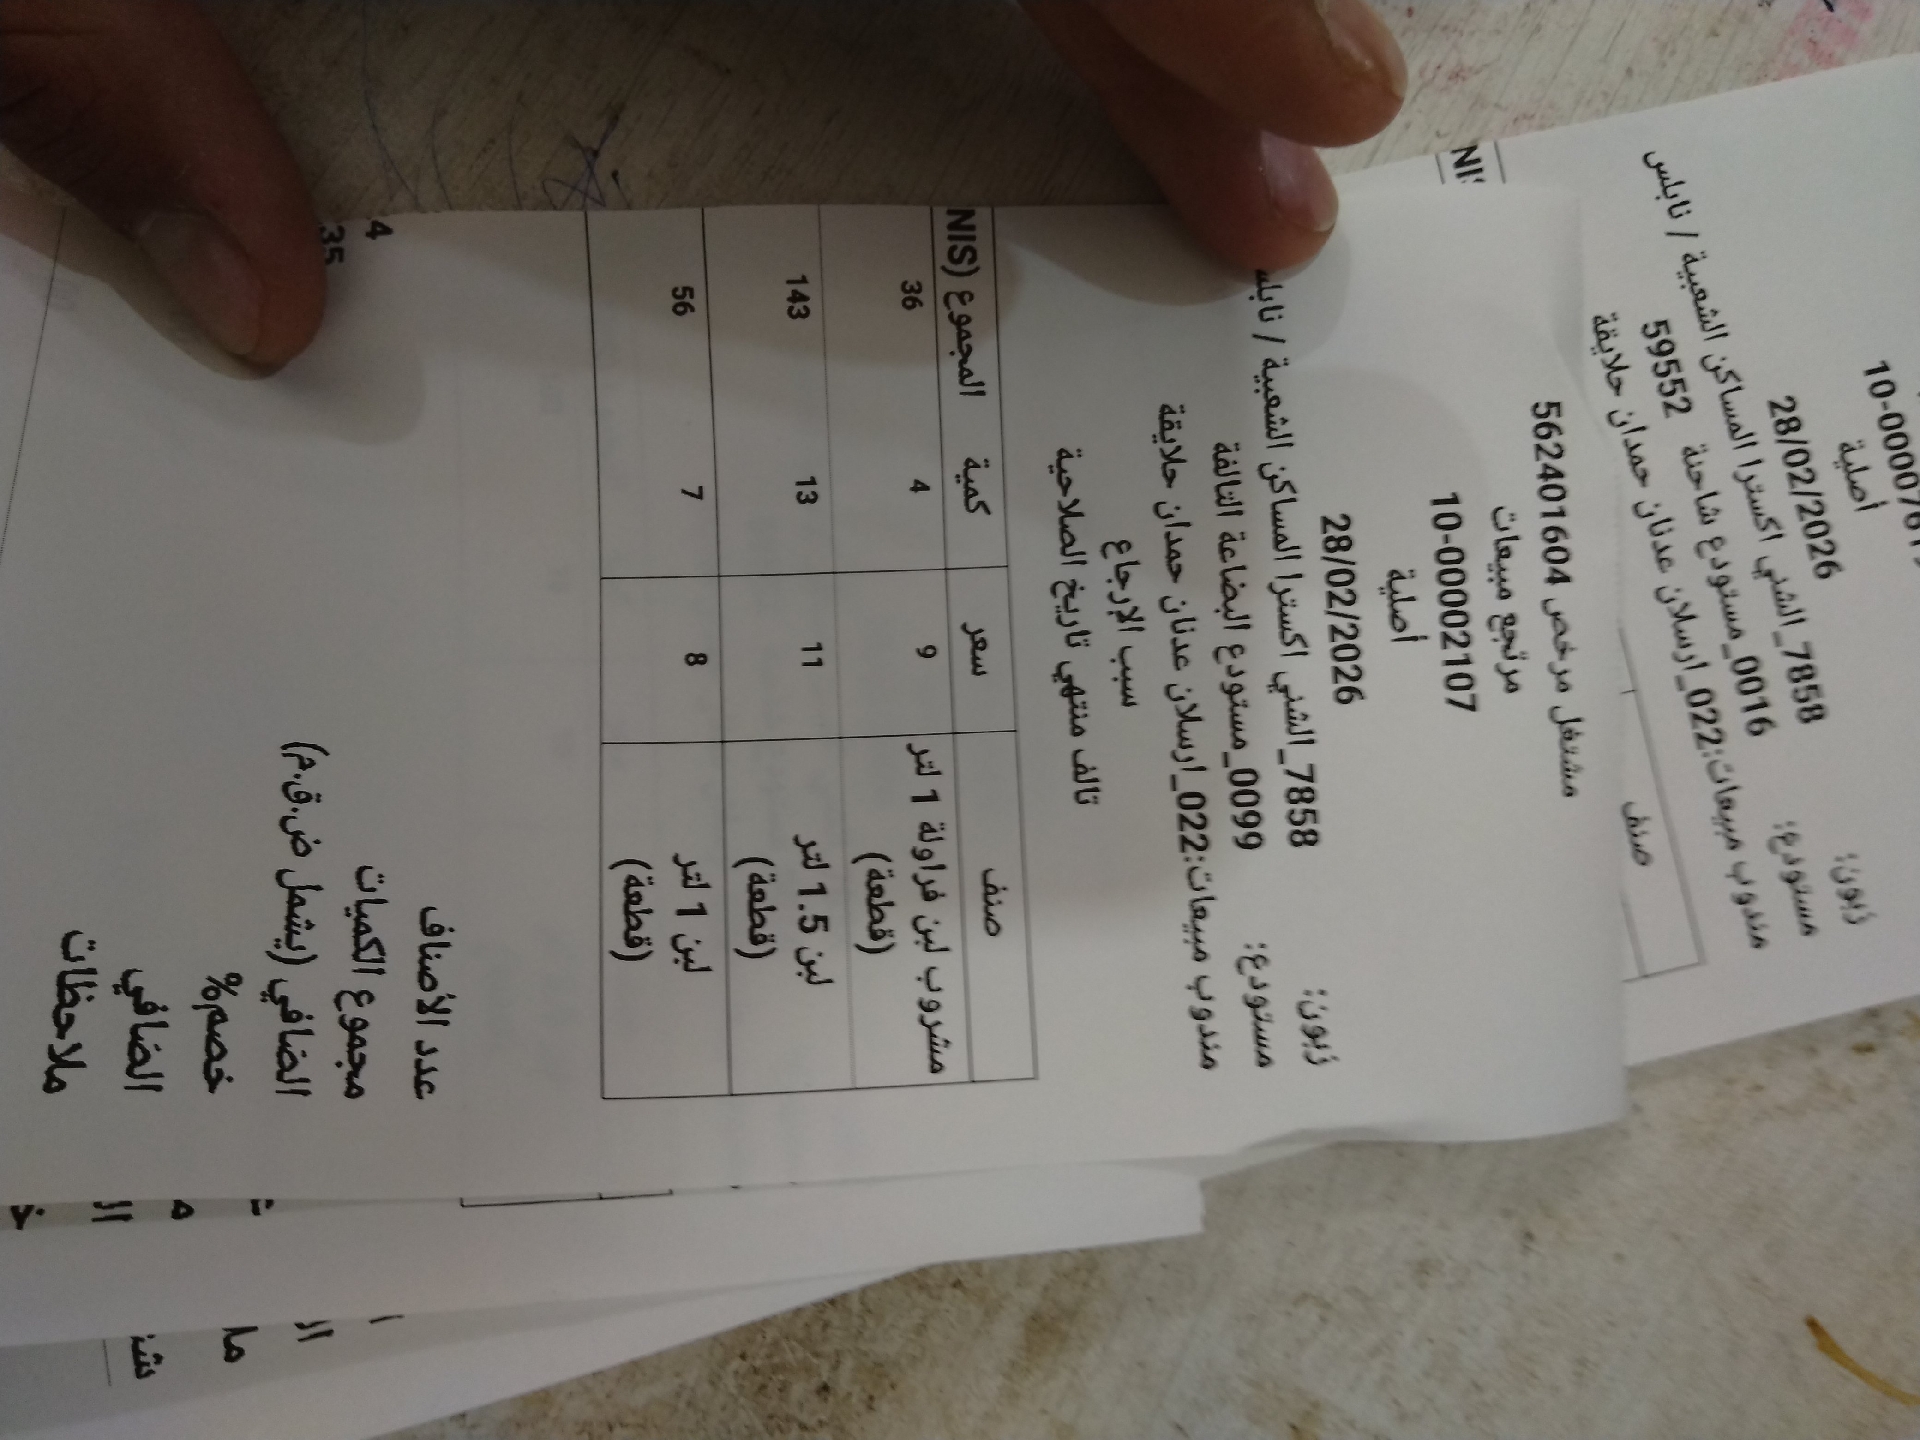 مشتغل مرخص 562401604
مرتجع مبيعات
10-00002107
أصلية
28/02/2026
زبون: 7858_الشني اكسترا المساكن الشعبية / نابلس
مستودع: 0099_مستودع البضاعة التالفة
مندوب مبيعات:022_ارسلان عدنان حمدان حلايقة
سبب الإرجاع
تالف منتهي تاريخ الصلاحية
صنف سعر كمية المجموع (NIS
مشروب لبن فراولة 1 لتر (قطعة) 9 4 36
لبن 1.5 لتر (قطعة) 11 13 143
لبن 1 لتر (قطعة) 8 7 56
عدد الأصناف
مجموع الكميات 4
الصافي (يشمل ض.ق.م) 35
خصم%
الصافي
ملاحظات
أصلية
28/02/2026
زبون: 7858_الشني اكسترا المساكن الشعبية / نابلس
مستودع: 0016_مستودع شاحنة 59552
مندوب مبيعات:022_ارسلان عدنان حمدان حلايقة
صنف